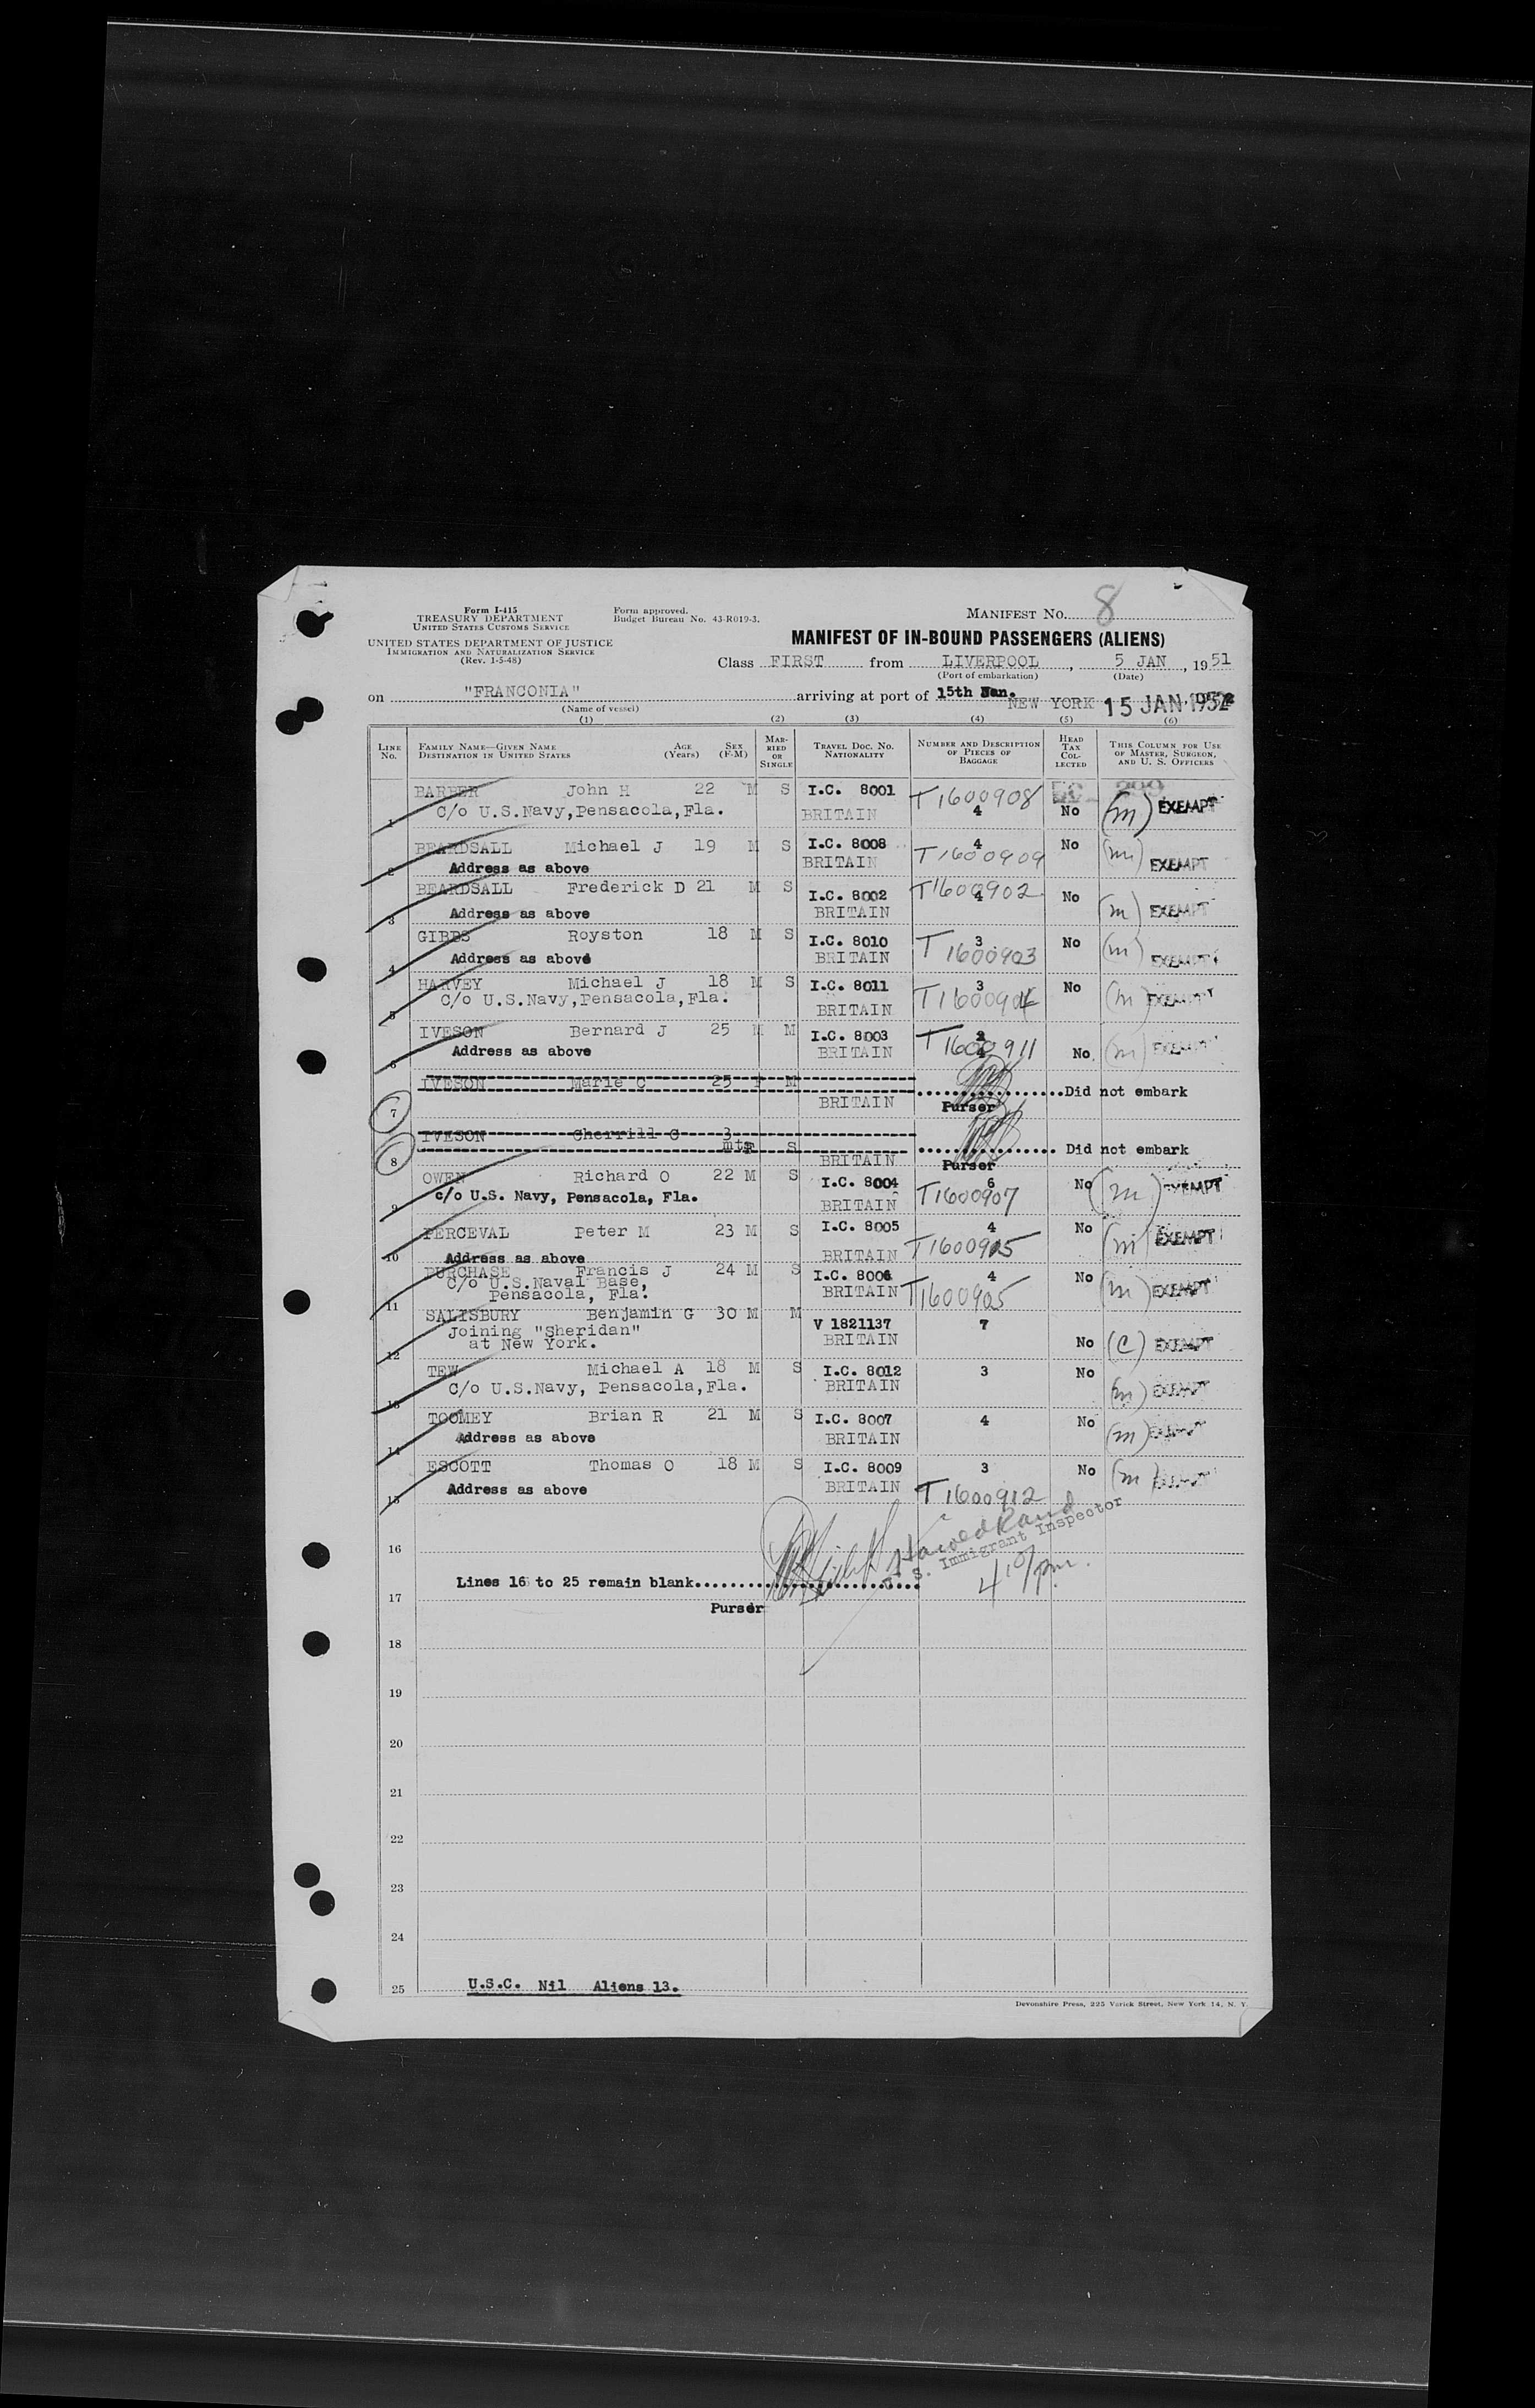 Form I-415
TREASURY DEPARTMENT
UNITED STATES CUSTOMS SERVICE
UNITED STATES DEPARTMENT OF JUSTICE
IMMIGRATION AND NATURALIZATION SERVICE
(Rev. 1-5-48)
Form approved.
Budget Bureau No. 43-R019-3.
MANIFEST NO. 8
MANIFEST OF IN-BOUND PASSENGERS (ALIENS)
Class FIRST from LIVERPOOL, 5 JAN, 1951
(Port of embarkation) (Date)
on "FRANCONIA" arriving at port of 15th Jan. NEW YORK 15 JAN 1952
(Name of vessel)
(1) (2) (3) (4) (5) (6)
LINE NO.
FAMILY NAME—GIVEN NAME AGE (Years) SEX (F-M)
DESTINATION IN UNITED STATES
MARRIED OR SINGLE
TRAVEL DOC. NO. NATIONALITY
NUMBER AND DESCRIPTION OF PIECES OF BAGGAGE
HEAD TAX COLLECTED
THIS COLUMN FOR USE OF MASTER, SURGEON, AND U. S. OFFICERS
1 BARBER John H 22 M S I.C. 8001 T1600908
c/o U.S.Navy,Pensacola,Fla. BRITAIN 4 No (m) EXEMPT
2 BEARDSALL Michael J 19 M S I.C. 8008 4 No (m)
Address as above BRITAIN T1600909 EXEMPT
3 BEARDSALL Frederick D 21 M S I.C. 8002 T1600902 4 No
Address as above BRITAIN (m) EXEMPT
4 GIBBS Royston 18 M S I.C. 8010 3 No (m)
Address as above BRITAIN T1600903 EXEMPT
5 HARVEY Michael J 18 M S I.C. 8011 3 No
c/o U.S.Navy,Pensacola,Fla. BRITAIN T1600904 (m) EXEMPT
6 IVESON Bernard J 25 M M I.C. 8003 T1600911
Address as above BRITAIN 4 No. (m) EXEMPT
7 IVESON Marie C 25 F M Did not embark
BRITAIN Purser
8 IVESON Cherrill C 3 mts F S Did not embark
BRITAIN Purser
9 OWEN Richard O 22 M S I.C. 8004 6 No (m) EXEMPT
c/o U.S. Navy, Pensacola, Fla. BRITAIN T1600907
10 PERCEVAL Peter M 23 M S I.C. 8005 4 No (m) EXEMPT
Address as above BRITAIN T1600915
11 PURCHASE Francis J 24 M S I.C. 8006 4 No (m) EXEMPT
c/o U.S.Naval Base, BRITAIN T1600905
Pensacola, Fla.
12 SALISBURY Benjamin G 30 M M V 1821137 7
Joining "Sheridan" BRITAIN No (C) EXEMPT
at New York.
13 TEW Michael A 18 M S I.C. 8012 3 No
c/o U.S.Navy, Pensacola,Fla. BRITAIN (m) EXEMPT
14 TOOMEY Brian R 21 M S I.C. 8007 4 No
Address as above BRITAIN (m) EXEMPT
15 ESCOTT Thomas O 18 M S I.C. 8009 3 No (m) EXEMPT
Address as above BRITAIN T1600912
U. S. Immigrant Inspector
16
Lines 16 to 25 remain blank
4 10/pm.
17
Purser
18
19
20
21
22
23
24
25 U.S.C. Nil Aliens 13.
Devonshire Press, 225 Varick Street, New York 14, N. Y.